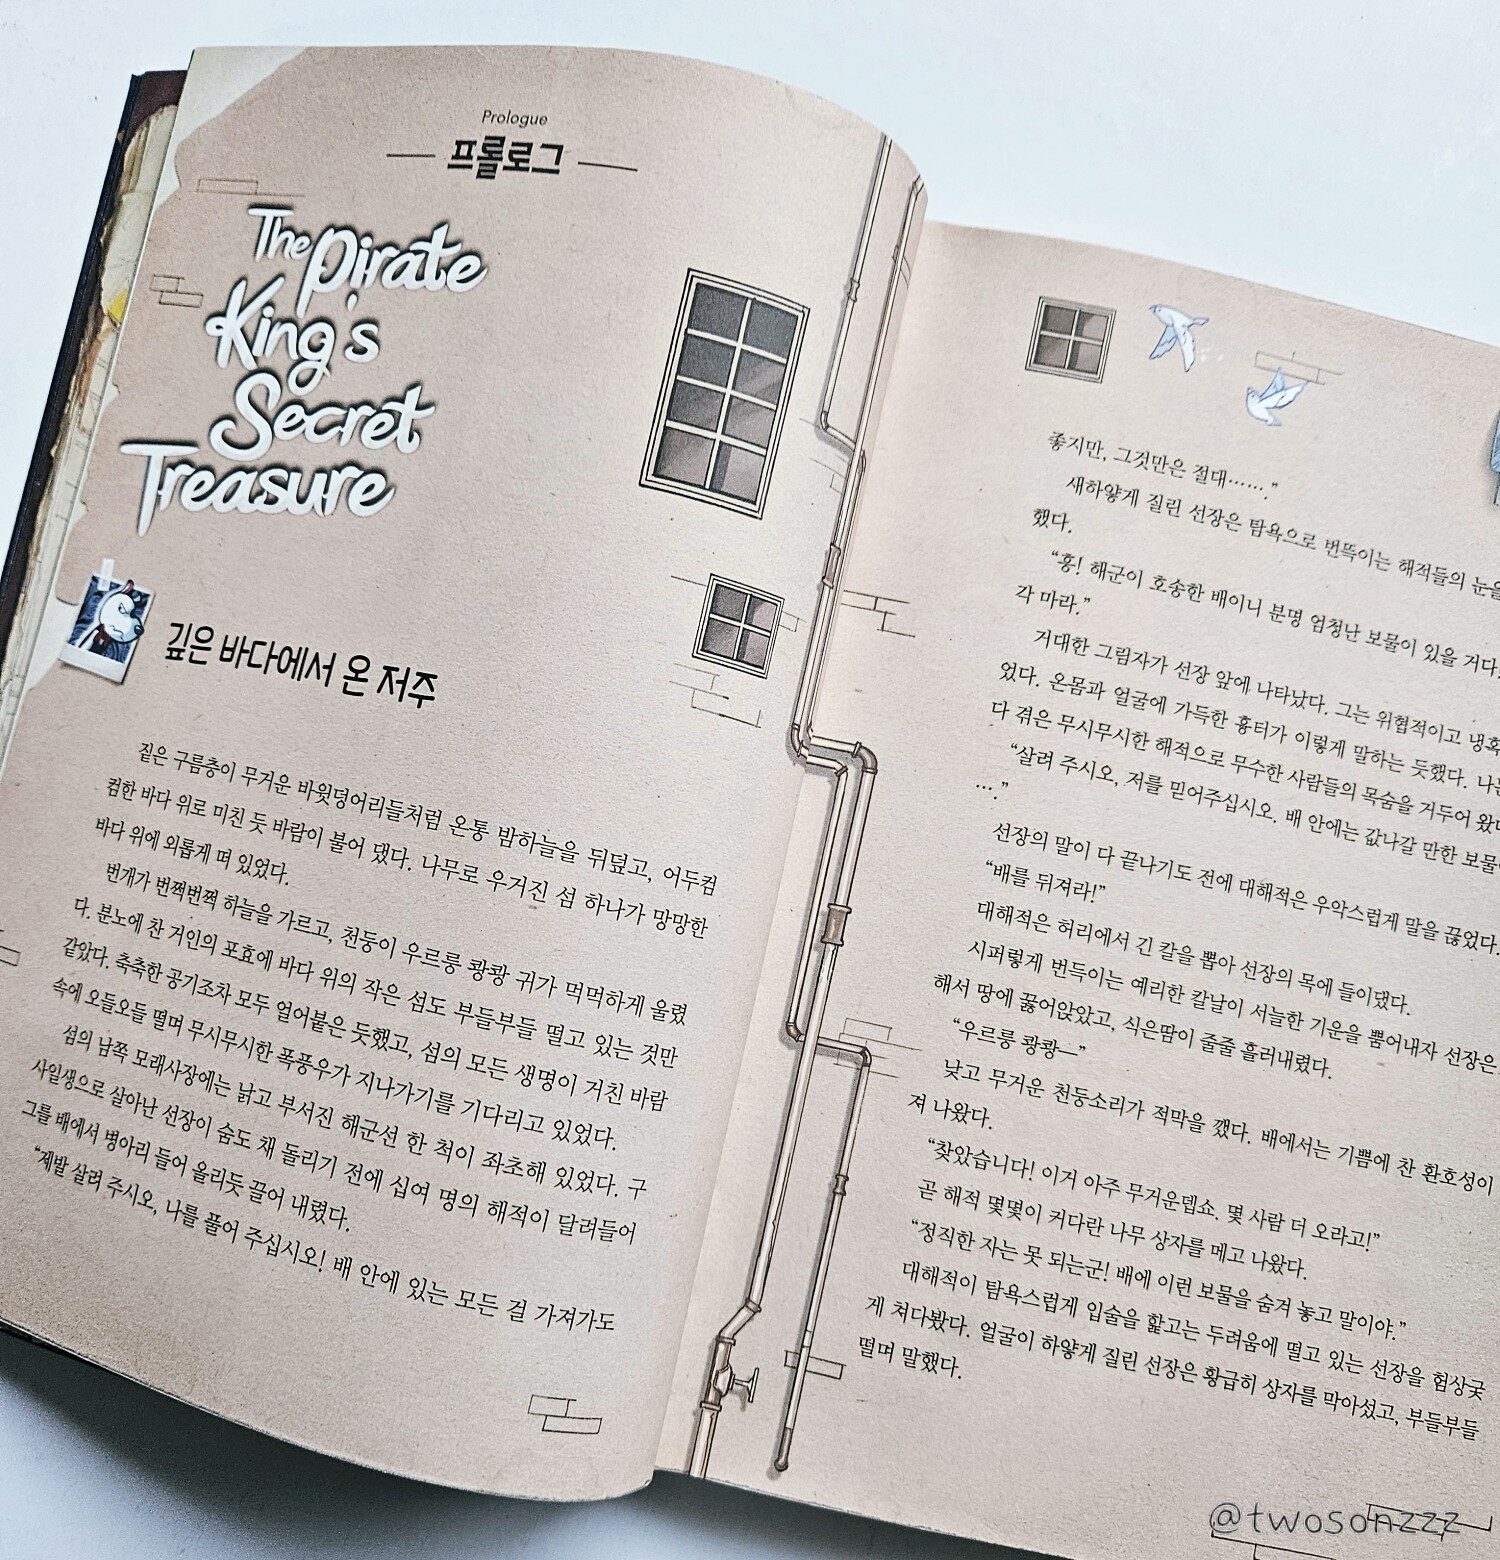 Prologue
프롤로그
The Pirate
King's
Secret
Treasure
깊은 바다에서 온 저주
짙은 구름층이 무거운 바윗덩어리들처럼 온통 밤하늘을 뒤덮고, 어두컴
컴한 바다 위로 미친 듯 바람이 불어 댔다. 나무로 우거진 섬 하나가 망망한
바다 위에 외롭게 떠 있었다.
번개가 번쩍번쩍 하늘을 가르고, 천둥이 우르릉 쾅쾅 귀가 먹먹하게 울렸
다. 분노에 찬 거인의 포효에 바다 위의 작은 섬도 부들부들 떨고 있는 것만
같았다. 축축한 공기조차 모두 얼어붙은 듯했고, 섬의 모든 생명이 거친 바람
속에 오들오들 떨며 무시무시한 폭풍우가 지나가기를 기다리고 있었다.
섬의 남쪽 모래사장에는 낡고 부서진 해군선 한 척이 좌초해 있었다. 구
사일생으로 살아난 선장이 숨도 채 돌리기 전에 십여 명의 해적이 달려들어
그를 배에서 병아리 들어 올리듯 끌어 내렸다.
“제발 살려 주시오, 나를 풀어 주십시오! 배 안에 있는 모든 걸 가져가도
좋지만, 그것만은 절대…….”
새하얗게 질린 선장은 탐욕으로 번뜩이는 해적들의 눈을
했다.
“흥! 해군이 호송한 배이니 분명 엄청난 보물이 있을 거다.
각 마라.”
거대한 그림자가 선장 앞에 나타났다. 그는 위협적이고 냉혹
었다. 온몸과 얼굴에 가득한 흉터가 이렇게 말하는 듯했다. 나는
다 겪은 무시무시한 해적으로 무수한 사람들의 목숨을 거두어 왔다
“살려 주시오, 저를 믿어주십시오. 배 안에는 값나갈 만한 보물
….”
선장의 말이 다 끝나기도 전에 대해적은 우악스럽게 말을 끊었다.
“배를 뒤져라!”
대해적은 허리에서 긴 칼을 뽑아 선장의 목에 들이댔다.
시퍼렇게 번득이는 예리한 칼날이 서늘한 기운을 뿜어내자 선장은
해서 땅에 꿇어앉았고, 식은땀이 줄줄 흘러내렸다.
“우르릉 쾅쾅―”
낮고 무거운 천둥소리가 적막을 깼다. 배에서는 기쁨에 찬 환호성이
져 나왔다.
“찾았습니다! 이거 아주 무거운뎁쇼. 몇 사람 더 오라고!”
곧 해적 몇몇이 커다란 나무 상자를 메고 나왔다.
“정직한 자는 못 되는군! 배에 이런 보물을 숨겨 놓고 말이야.”
대해적이 탐욕스럽게 입술을 핥고는 두려움에 떨고 있는 선장을 험상궂
게 쳐다봤다. 얼굴이 하얗게 질린 선장은 황급히 상자를 막아섰고, 부들부들
떨며 말했다.
@twosonzzz